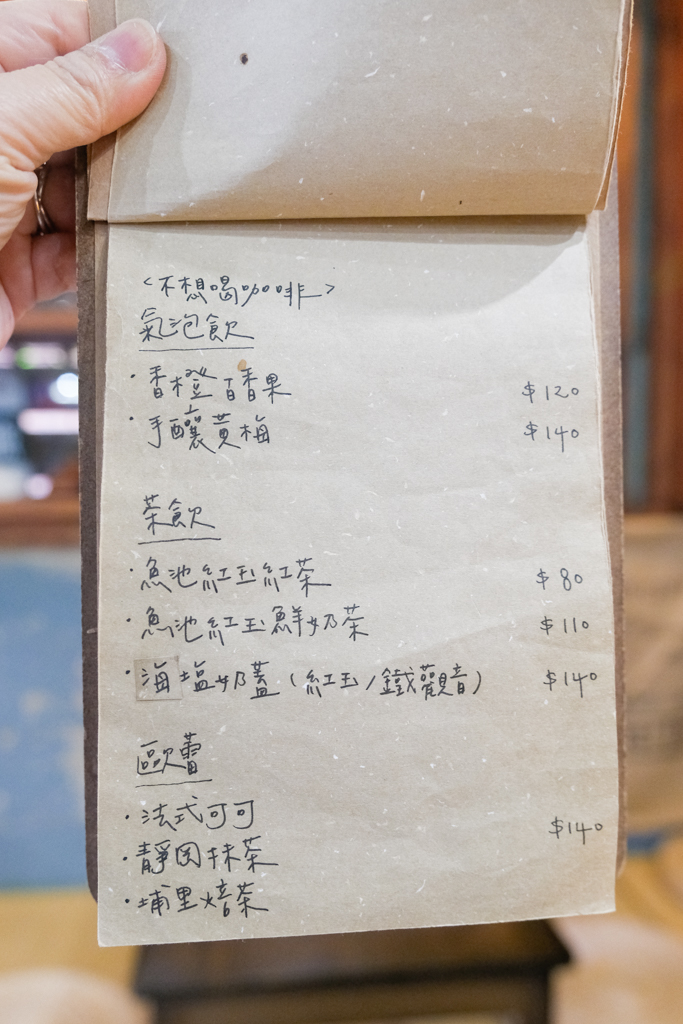 <不想喝咖啡>
氣泡飲
·香橙百香果 $120
·手釀黃梅 $140
茶飲
·魚池紅玉紅茶 $80
·魚池紅玉鮮奶茶 $110
·海塩奶蓋(紅玉/鐵觀音) $140
歐蕾
·法式可可
$140
·靜岡抹茶
·埔里焙茶